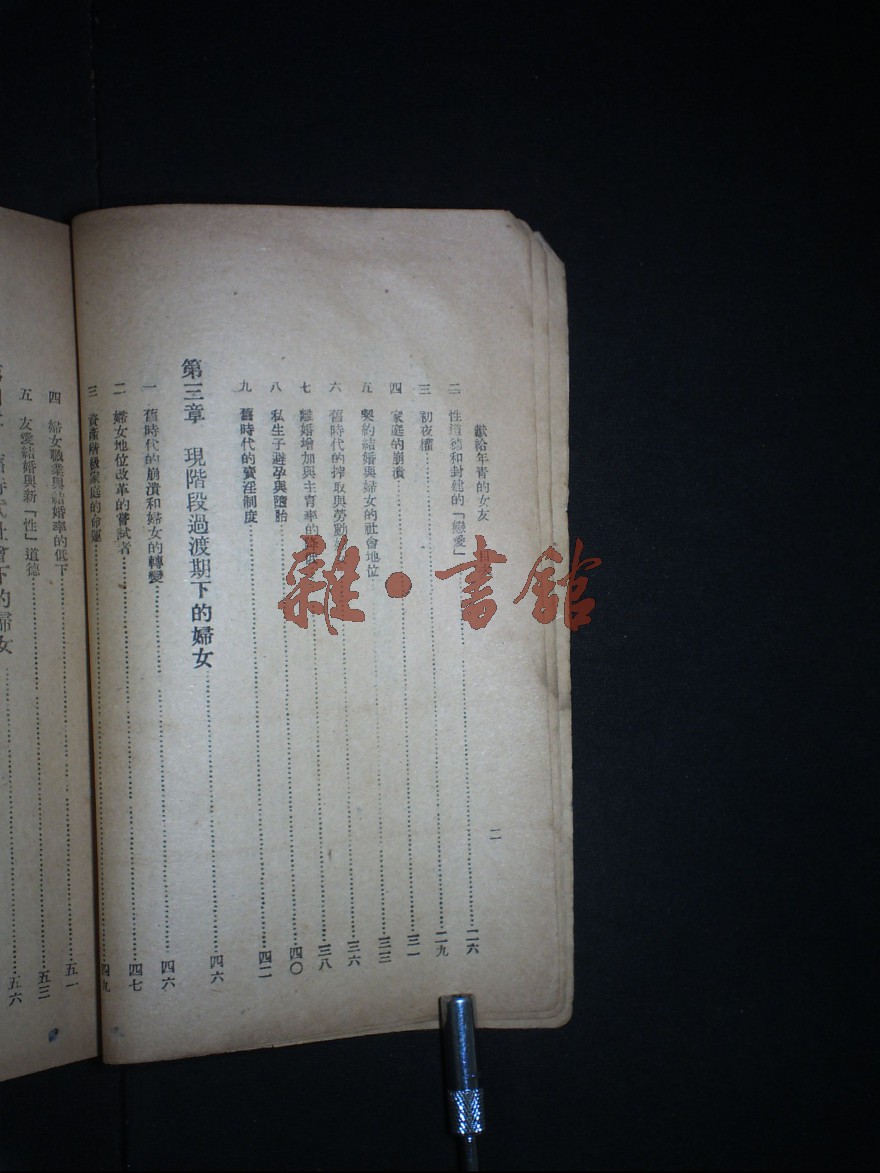 獻給年青的女友
二
二 性道德和封建的「戀愛」……二六
三 初夜權……二九
四 家庭的崩潰……三一
五 契約結婚與婦女的社會地位……三三
六 舊時代的搾取與勞動……三六
七 離婚增加與生育率的……三八
八 私生子避孕與墮胎……四〇
九 舊時代的賣淫制度……四二
第三章 現階段過渡期下的婦女……四六
一 舊時代的崩潰和婦女的轉變……四六
二 婦女地位改革的嘗試者……四七
三 資產階級家庭的命運……四九
四 婦女職業與結婚率的低下……五一
五 友愛結婚與新「性」道德……五三
社會下的婦女……五六
雜·書館